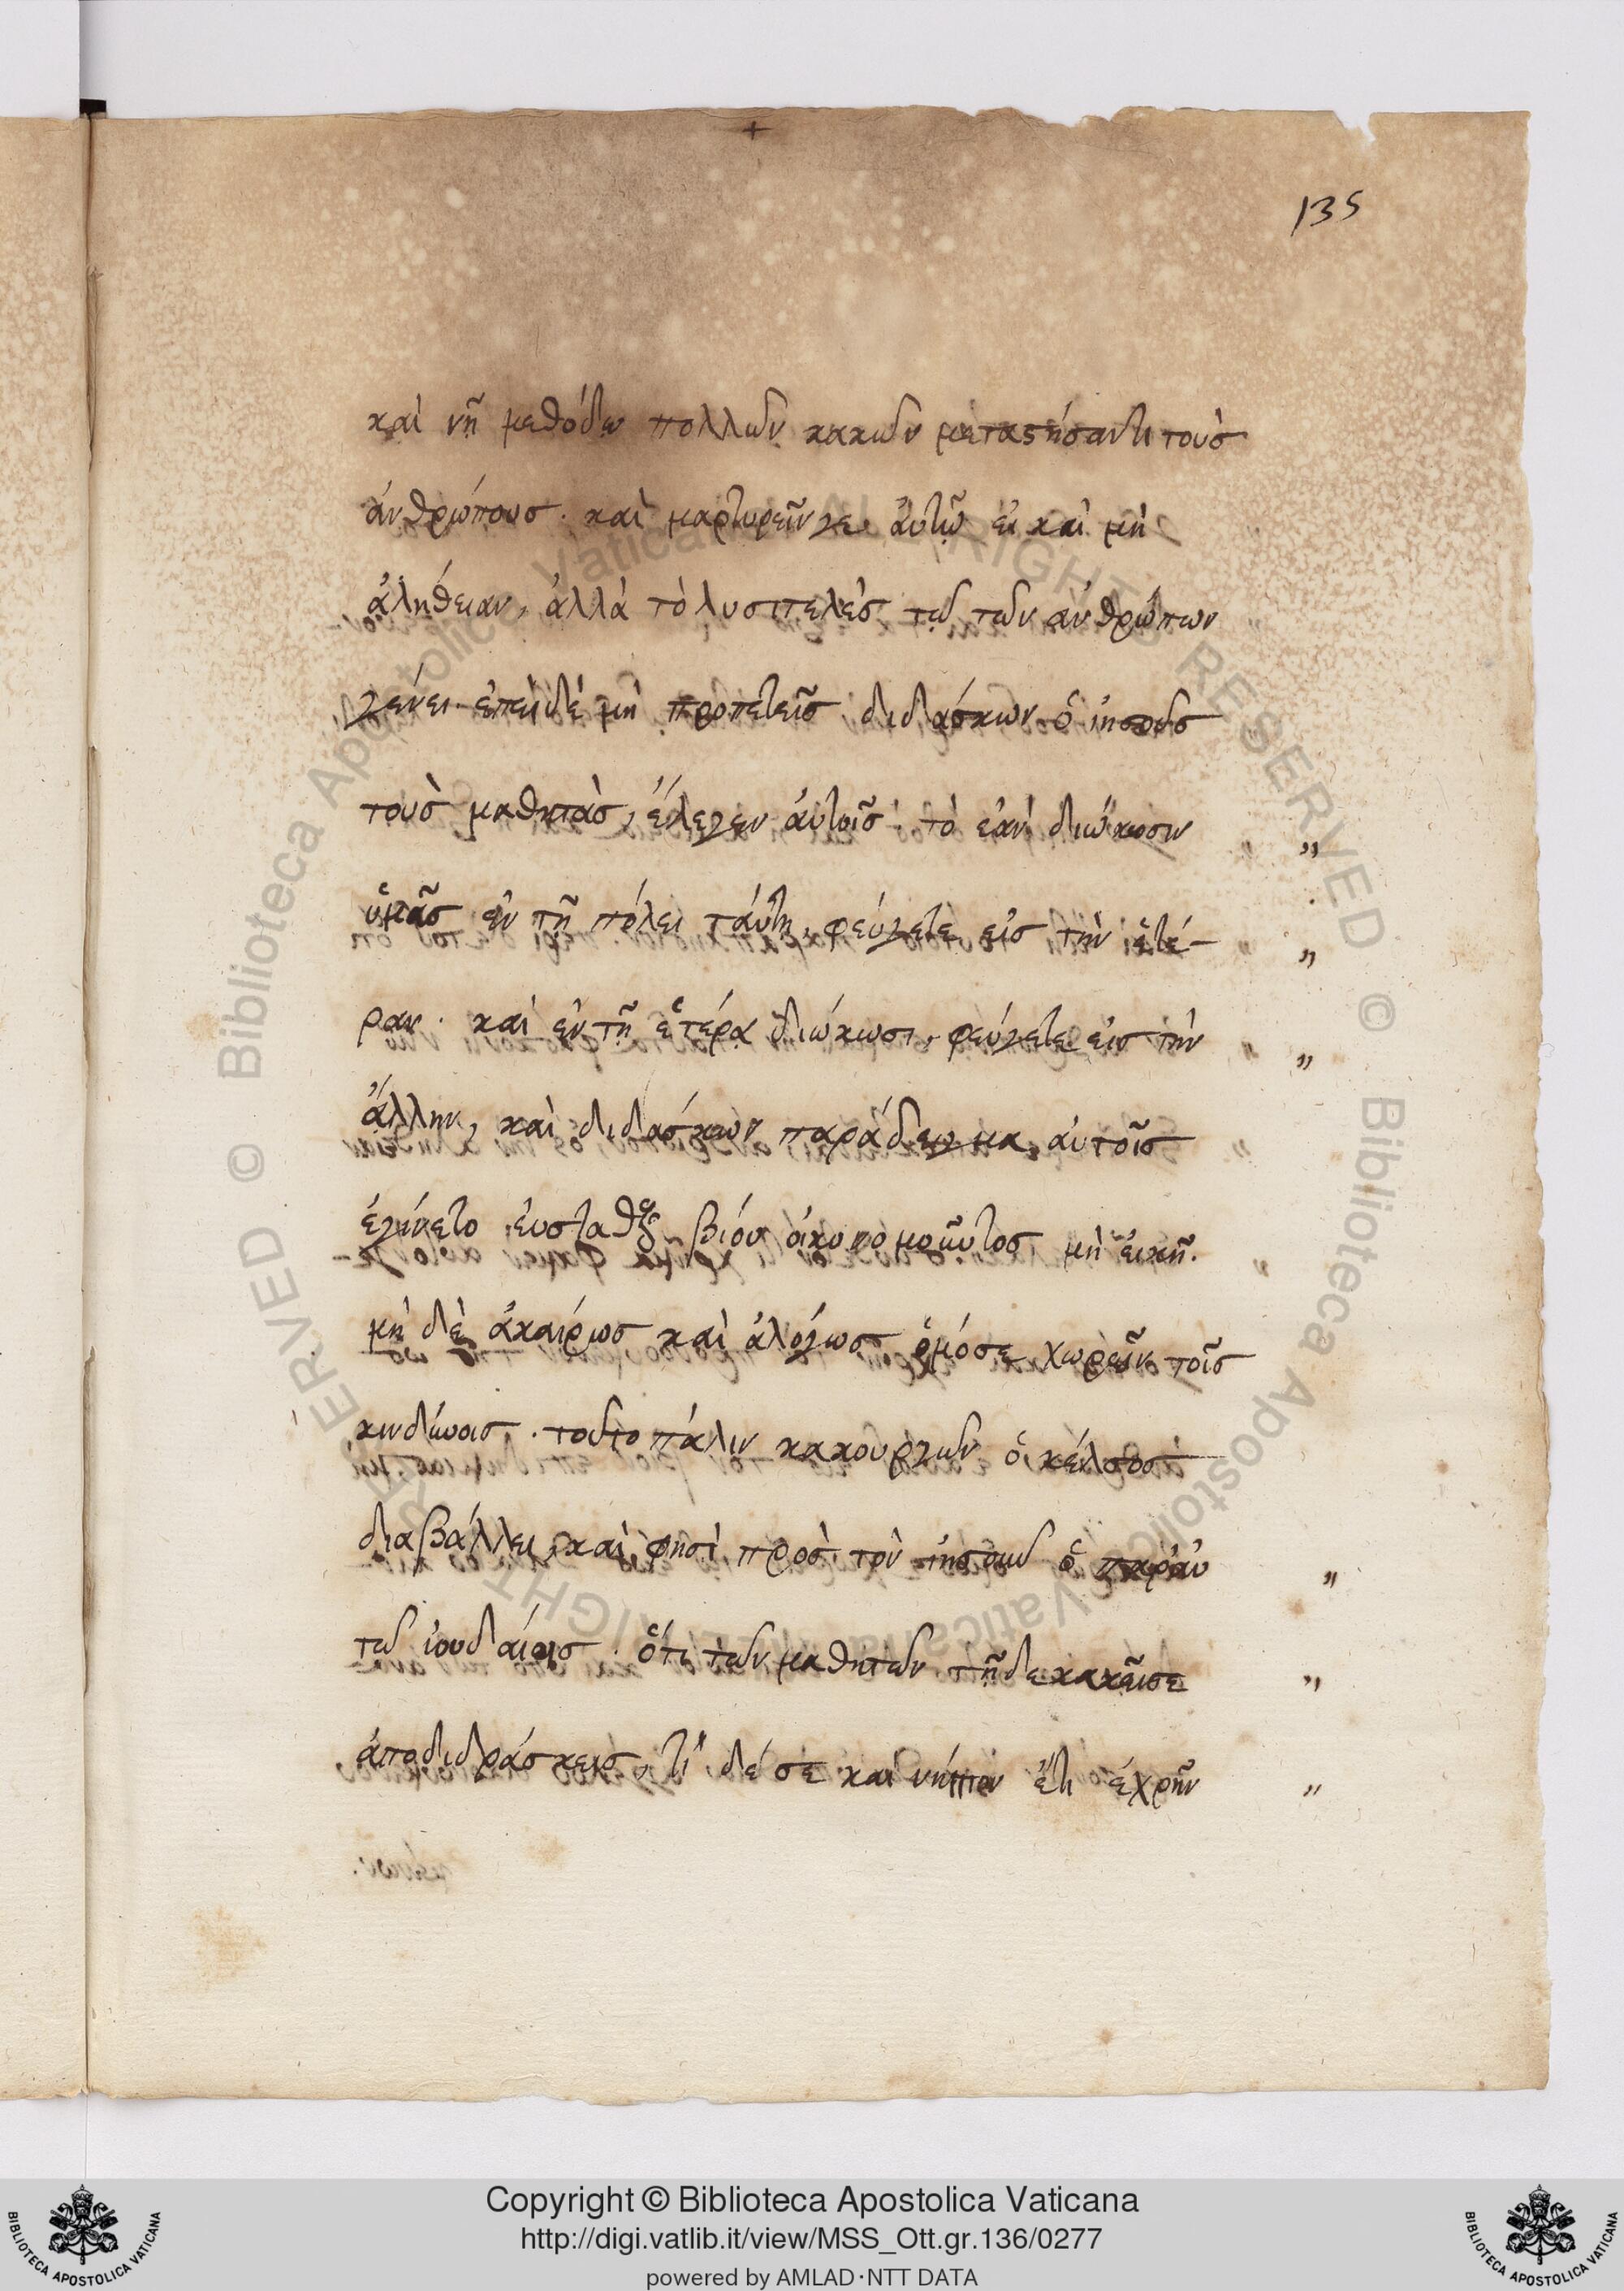 135
καὶ νῆ μεθόδω πολλῶν κακῶν μεταστήσαντι τοὺσ
ἀνθρώπουσ · καὶ μαρτυρεῖν γε ἀυτῶ εἰ καὶ μὴ
ἀλήθειαν, ἀλλὰ τὸ λυσιτελὲσ τῶ τῶν ἀνθρώπων
γένει · ἐπεὶ δὲ μὴ προπετεῖσ διδάσκων ὁ ἰησοῦσ
τοὺσ μαθητὰσ, ἔλεγεν ἀυτοῖσ · τὸ ἐὰν διώκωσιν „
ὑμᾶσ ἐν τῆ πόλει ταύτη, φεύγετε εἰσ τὴν ἑτέ- „
ραν · καὶ ἐν τῆ ἑτέρα διώκωσι, φεύγετε εἰσ τὴν „
ἄλλην, καὶ διδάσκων παράδειγμα αὐτοῖσ
ἐγίνετο ἐυσταθοῦς βίου ὀικονομοῦντος μὴ ἐικῆ ·
μὴ δὲ ἀκαίρωσ καὶ ἀλόγωσ ὁμόσε χωρεῖν τοῖσ
κινδύνοισ · τοῦτο πάλιν κακουργῶν ὁ κέλσοσ
διαβάλλει, καὶ φησὶ πρὸσ τὸν ἰησοῦν ὁ παρ' ἀυ „
τῶ ἰουδαίοισ · ὅτι τῶν μαθητῶν τῆδε κακεῖσε „
ἀποδιδράσκεισ, τί δέ σε καὶ νήπιον ἔτι ἐχρῆν „
Copyright © Biblioteca Apostolica Vaticana
http://digi.vatlib.it/view/MSS_Ott.gr.136/0277
powered by AMLAD·NTT DATA
BIBLIOTECA APOSTOLICA VATICANA
BIBLIOTECA APOSTOLICA VATICANA